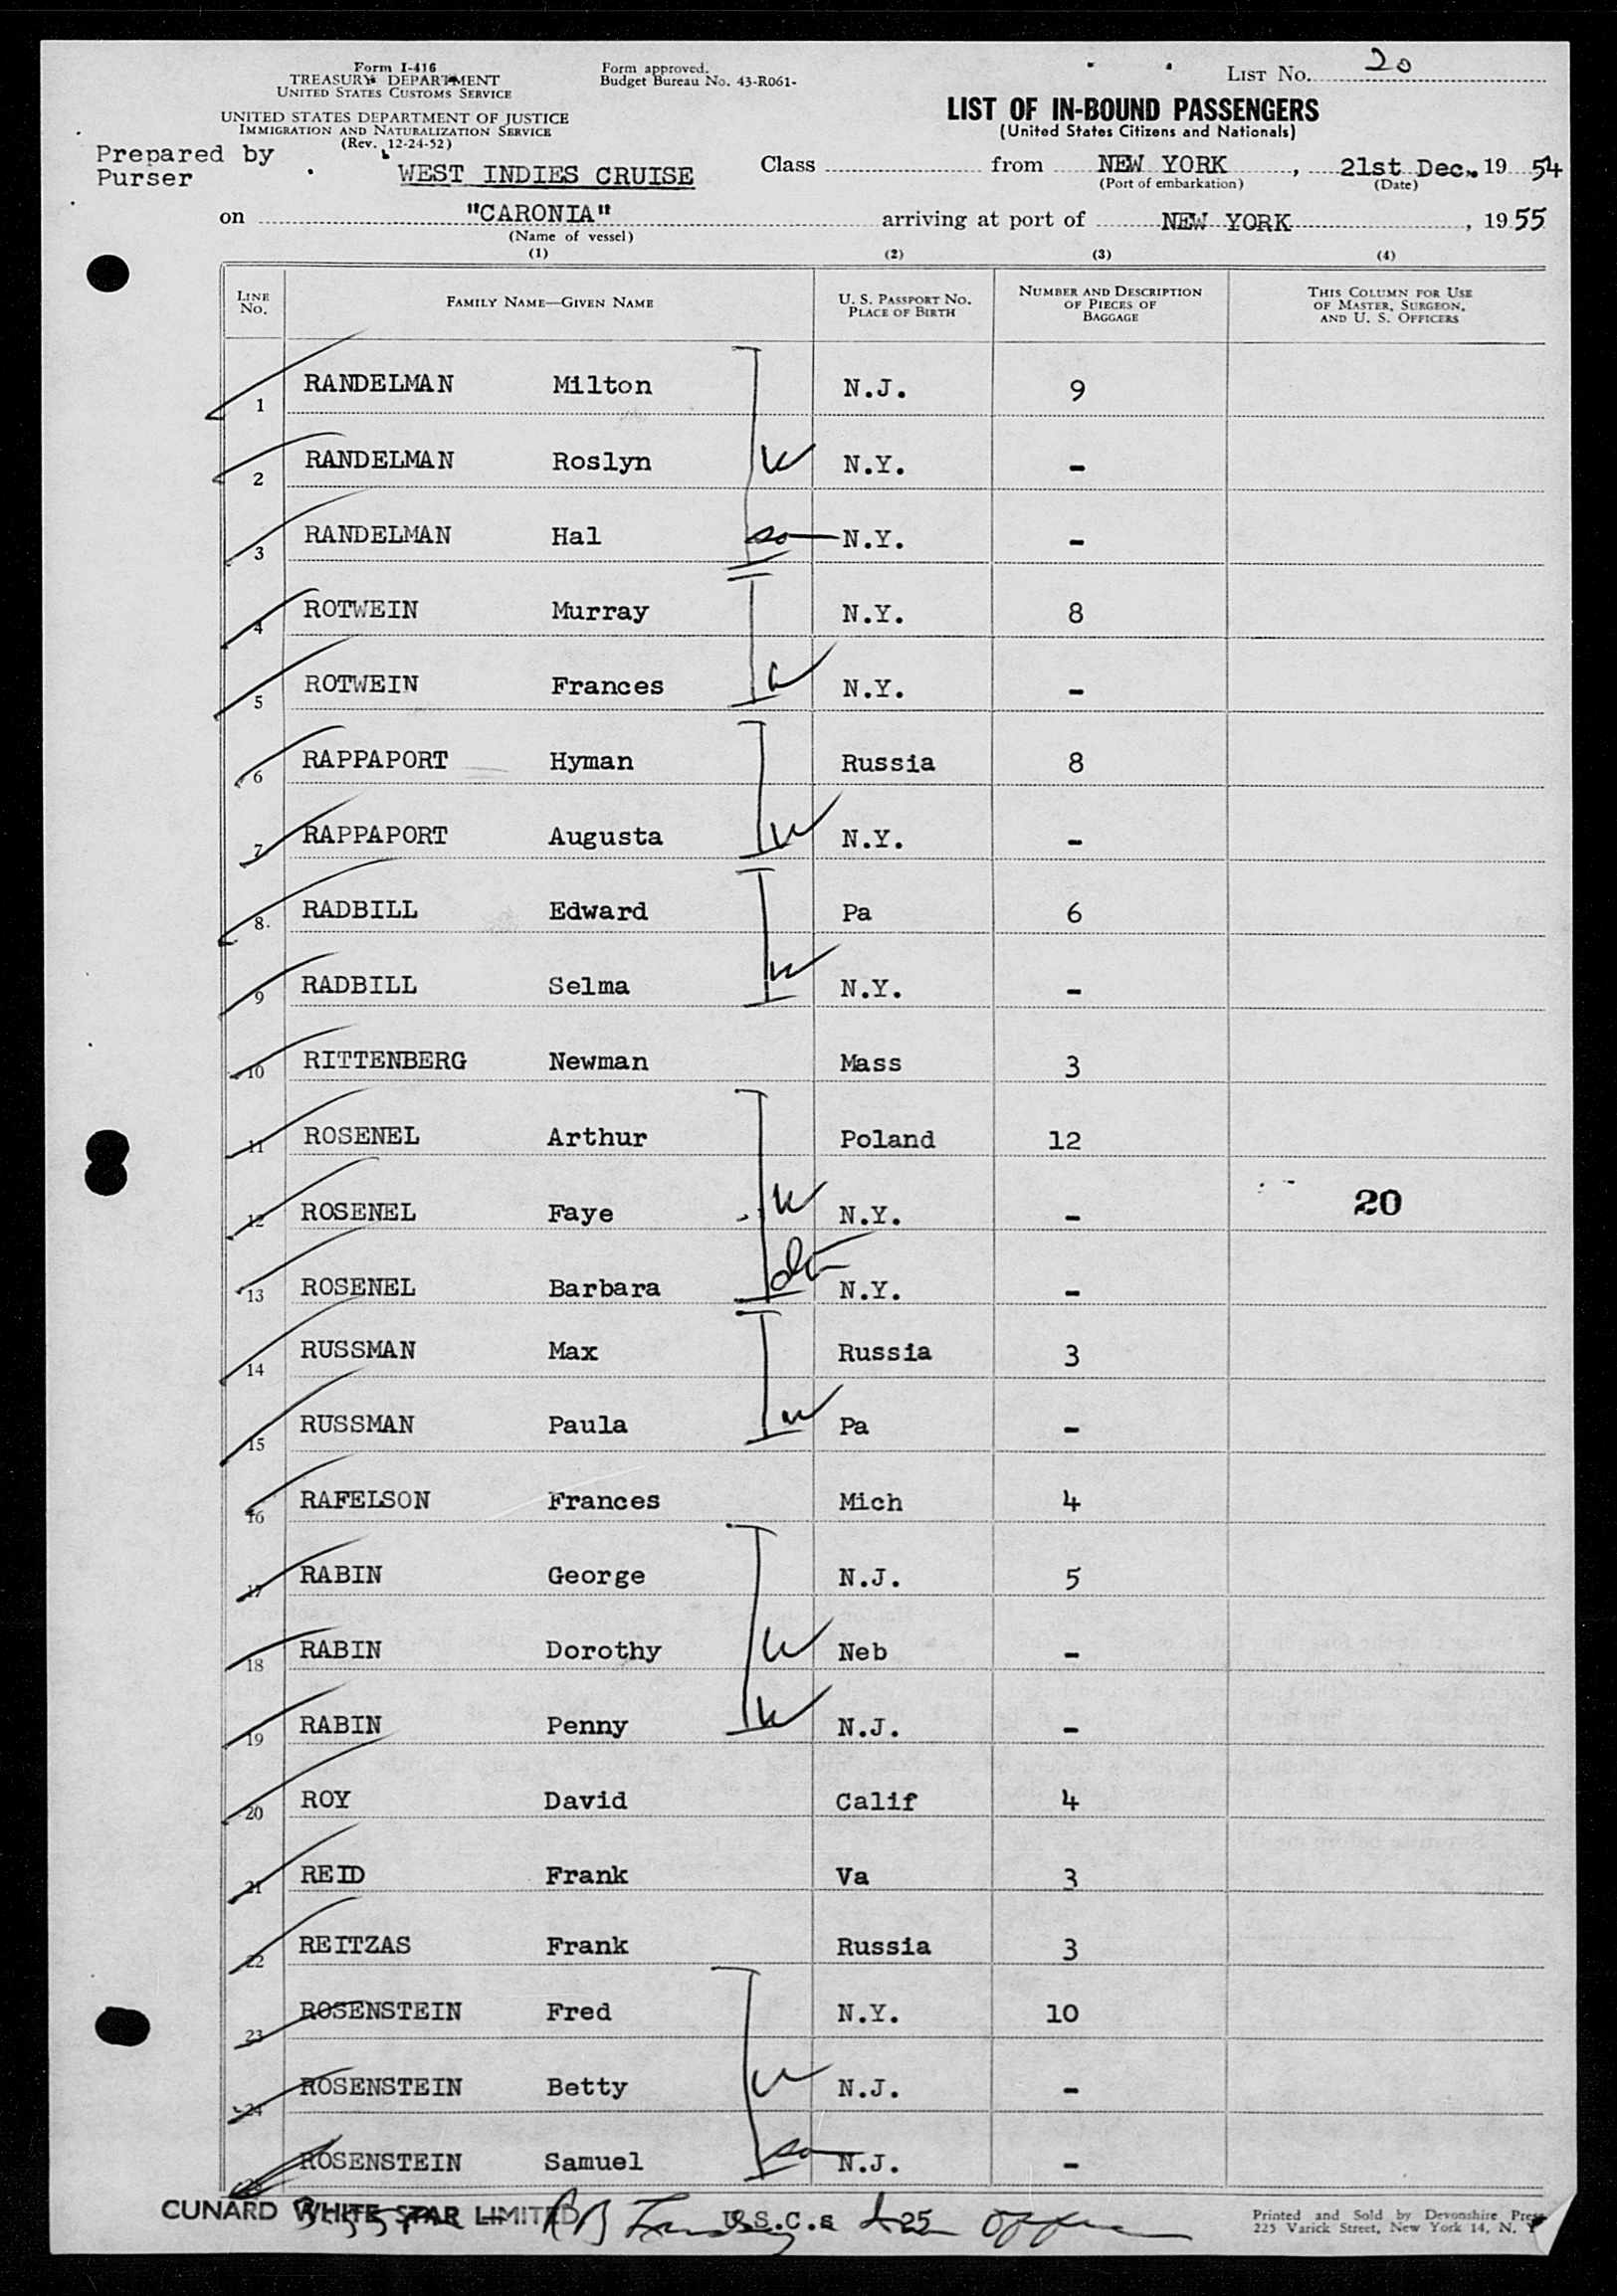 Form I-416
TREASURY DEPARTMENT
UNITED STATES CUSTOMS SERVICE
Form approved.
Budget Bureau No. 43-R061-
LIST NO. 20
UNITED STATES DEPARTMENT OF JUSTICE
IMMIGRATION AND NATURALIZATION SERVICE
(Rev. 12-24-52)
LIST OF IN-BOUND PASSENGERS
(United States Citizens and Nationals)
Prepared by
Purser
WEST INDIES CRUISE Class from NEW YORK, 21st Dec. 19 54
(Port of embarkation) (Date)
on "CARONIA" arriving at port of NEW YORK, 1955
(Name of vessel)
(1) (2) (3) (4)
LINE No. FAMILY NAME—GIVEN NAME U. S. PASSPORT NO. PLACE OF BIRTH NUMBER AND DESCRIPTION OF PIECES OF BAGGAGE THIS COLUMN FOR USE OF MASTER, SURGEON, AND U. S. OFFICERS
1 RANDELMAN Milton N.J. 9
2 RANDELMAN Roslyn W N.Y. -
3 RANDELMAN Hal so N.Y. -
4 ROTWEIN Murray N.Y. 8
5 ROTWEIN Frances W N.Y. -
6 RAPPAPORT Hyman Russia 8
7 RAPPAPORT Augusta W N.Y. -
8. RADBILL Edward Pa 6
9 RADBILL Selma W N.Y. -
10 RITTENBERG Newman Mass 3
11 ROSENEL Arthur Poland 12
12 ROSENEL Faye W N.Y. - 20
13 ROSENEL Barbara N.Y. -
14 RUSSMAN Max Russia 3
15 RUSSMAN Paula W Pa -
16 RAFELSON Frances Mich 4
17 RABIN George N.J. 5
18 RABIN Dorothy W Neb -
19 RABIN Penny W N.J. -
20 ROY David Calif 4
21 REID Frank Va 3
22 REITZAS Frank Russia 3
23 ROSENSTEIN Fred N.Y. 10
24 ROSENSTEIN Betty W N.J. -
25 ROSENSTEIN Samuel so N.J. -
CUNARD WHITE STAR LIMITED U.S.C.s 25
Printed and Sold by Devonshire Press
225 Varick Street, New York 14, N. Y.